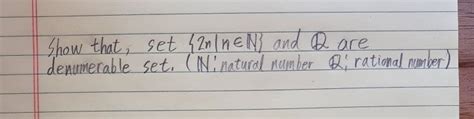 Show that, set {2n|n∈ℕ} and ℚ are
denumerable set. (ℕ; natural number ℚ; rational number)